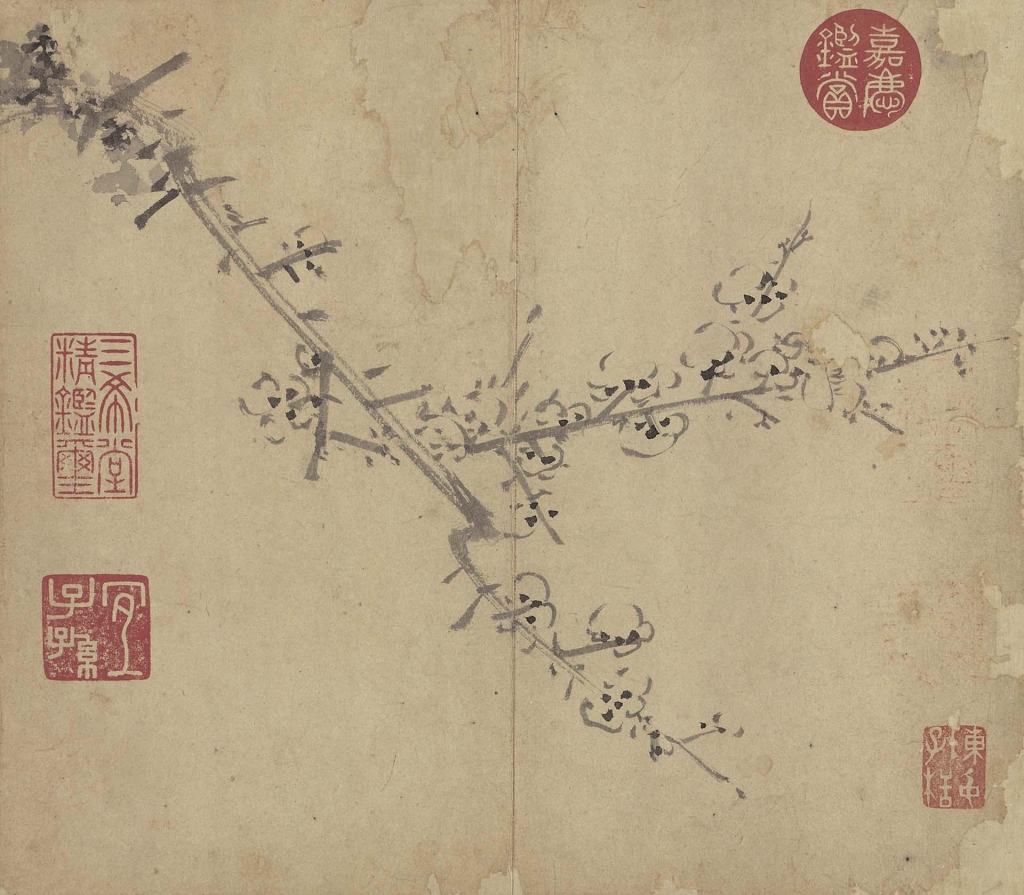 嘉慶
鑑賞
三希堂
精鑑璽
宜
子孫